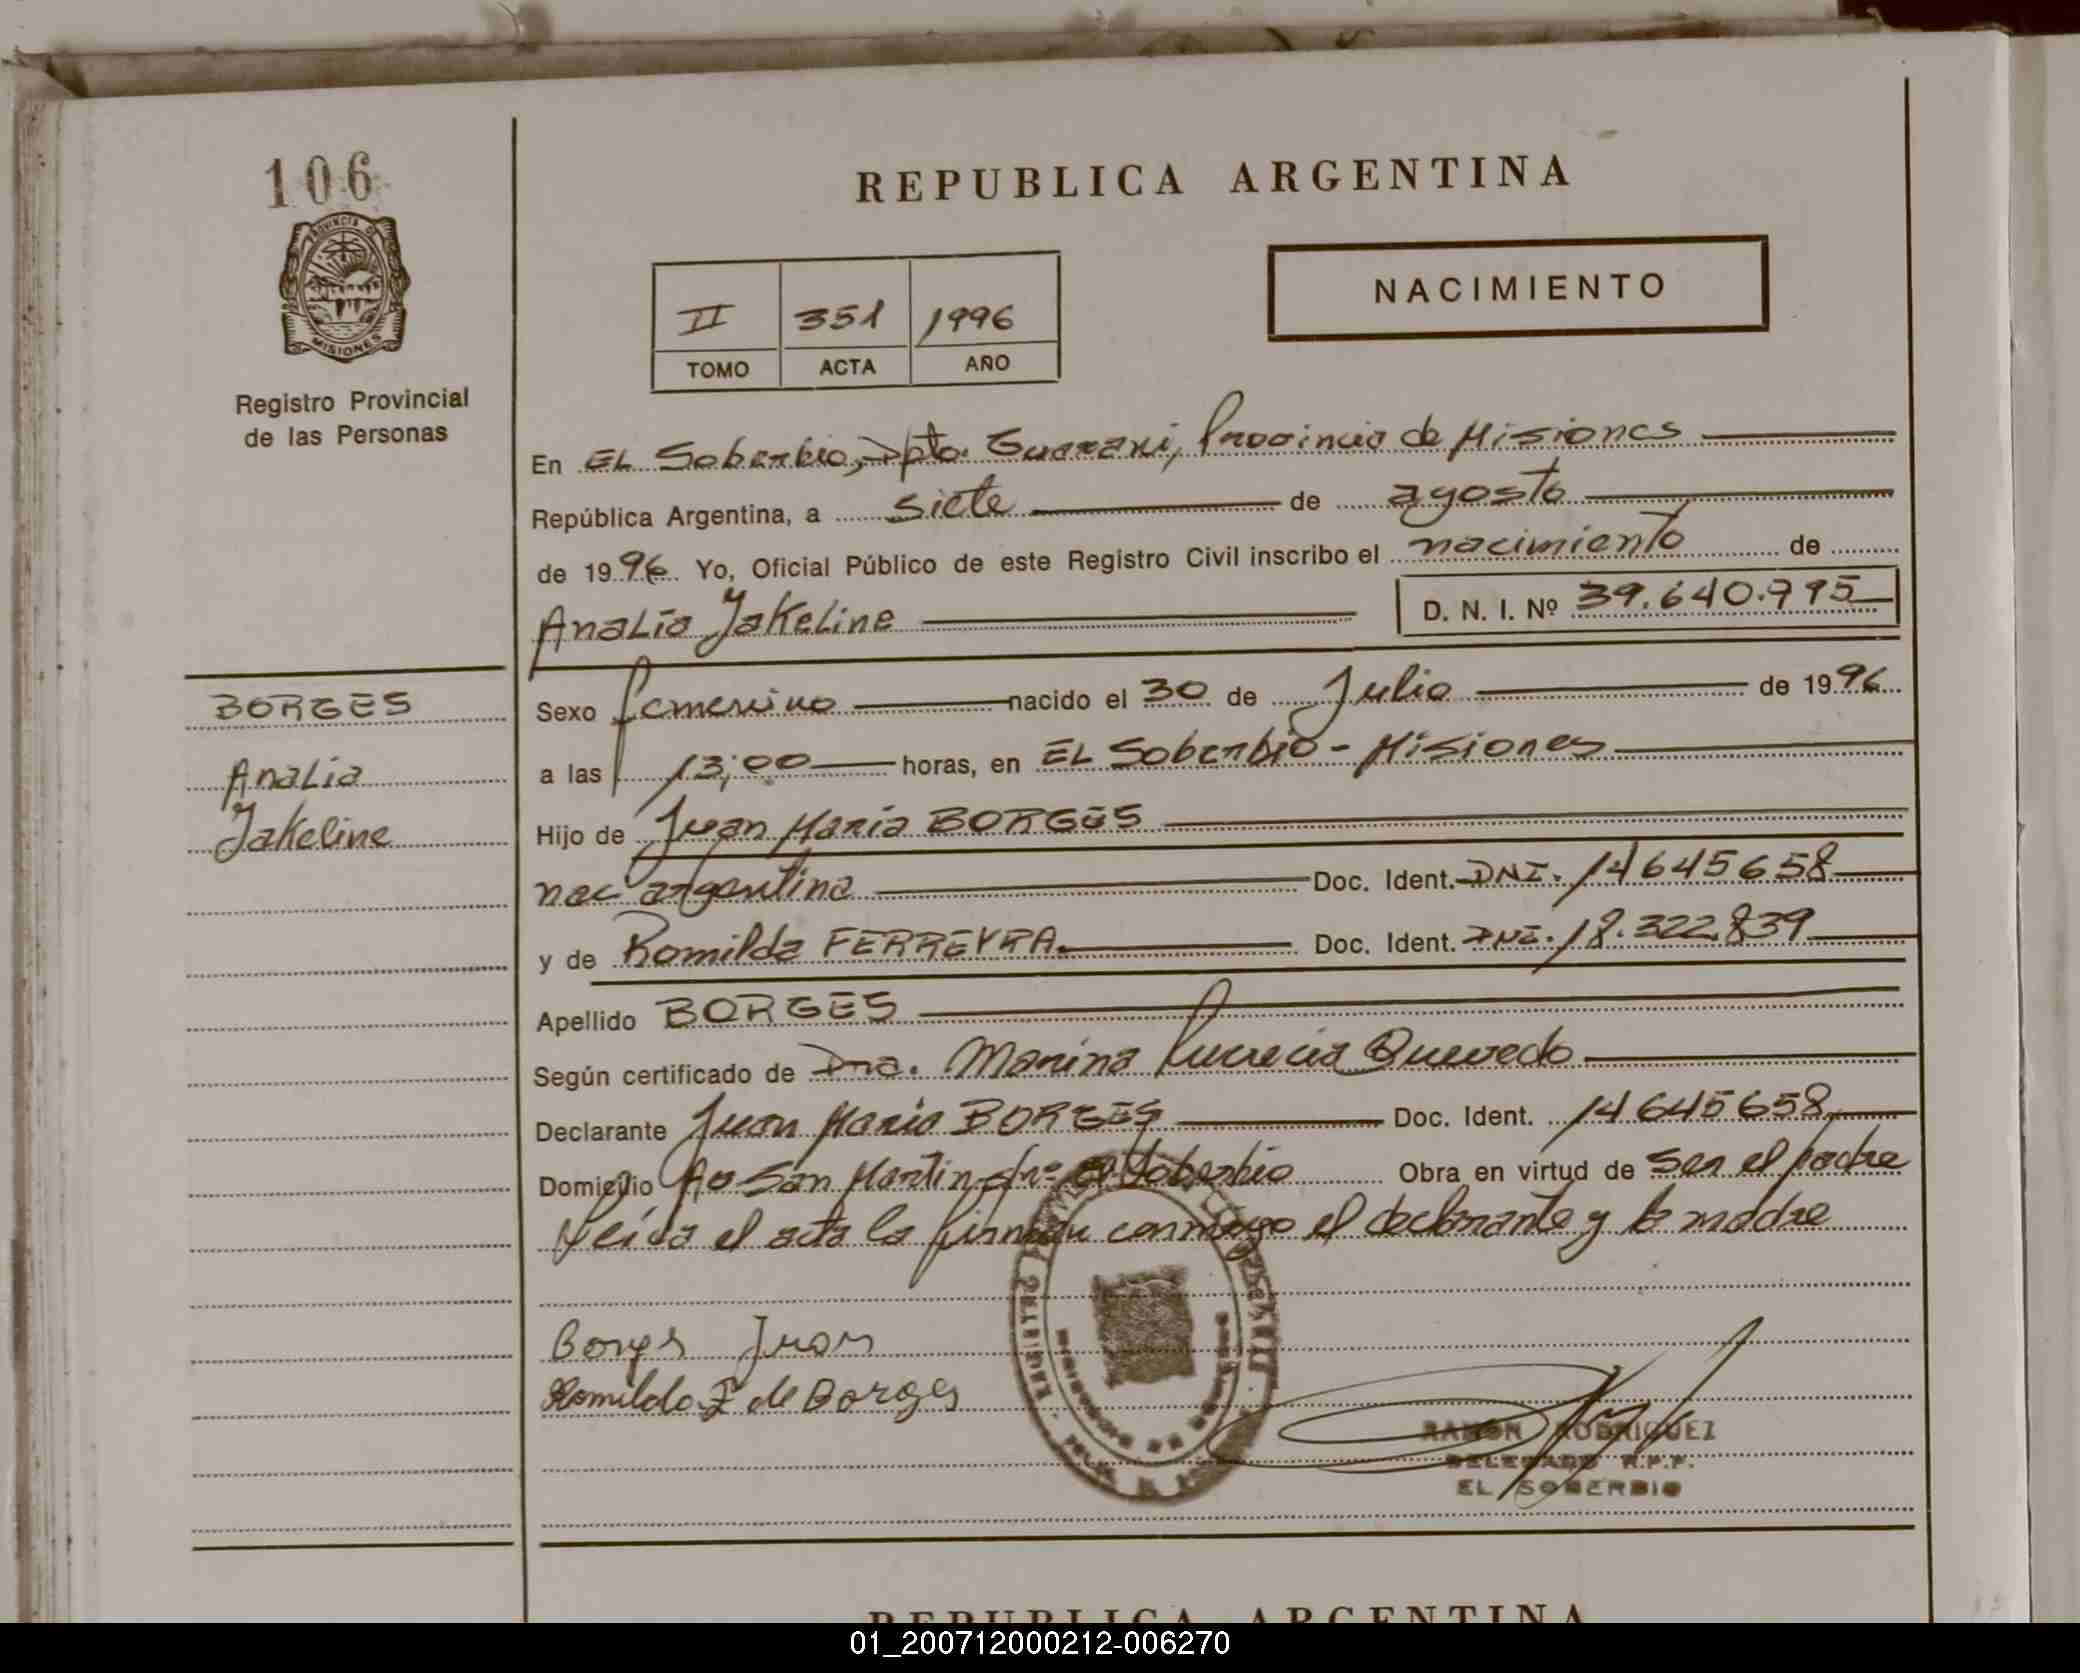 106
PROVINCIA DE
MISIONES
Registro Provincial
de las Personas
REPUBLICA ARGENTINA
NACIMIENTO
II 351 1996
TOMO ACTA AÑO
En EL Soberbio, Dpto. Guarani, Provincia de Misiones
República Argentina, a siete de agosto
de 1996 Yo, Oficial Público de este Registro Civil inscribo el nacimiento de
Analía Jakeline D. N. I. Nº 39.640.795
BORGES
Analia
Jakeline
Sexo femenino nacido el 30 de Julio de 1996
a las 13;00 horas, en EL Soberbio - Misiones
Hijo de Juan Maria BORGES
nac argentina Doc. Ident. DNI. 14645658
y de Romilda FERREYRA Doc. Ident. DNI. 18.322.839
Apellido BORGES
Según certificado de Dra. Marina Lucrecia Quevedo
Declarante Juan Maria BORGES Doc. Ident. 14645658
Domicilio Av San Martin s/nº El Soberbio Obra en virtud de ser el padre
Leida el acta la firman conmigo el declarante y la madre
Borges Juan
Romilda F de Borges
RAMON RODRIGUEZ
DELEGADO R.P.P.
EL SOBERBIO
REPUBLICA ARGENTINA
01_200712000212-006270